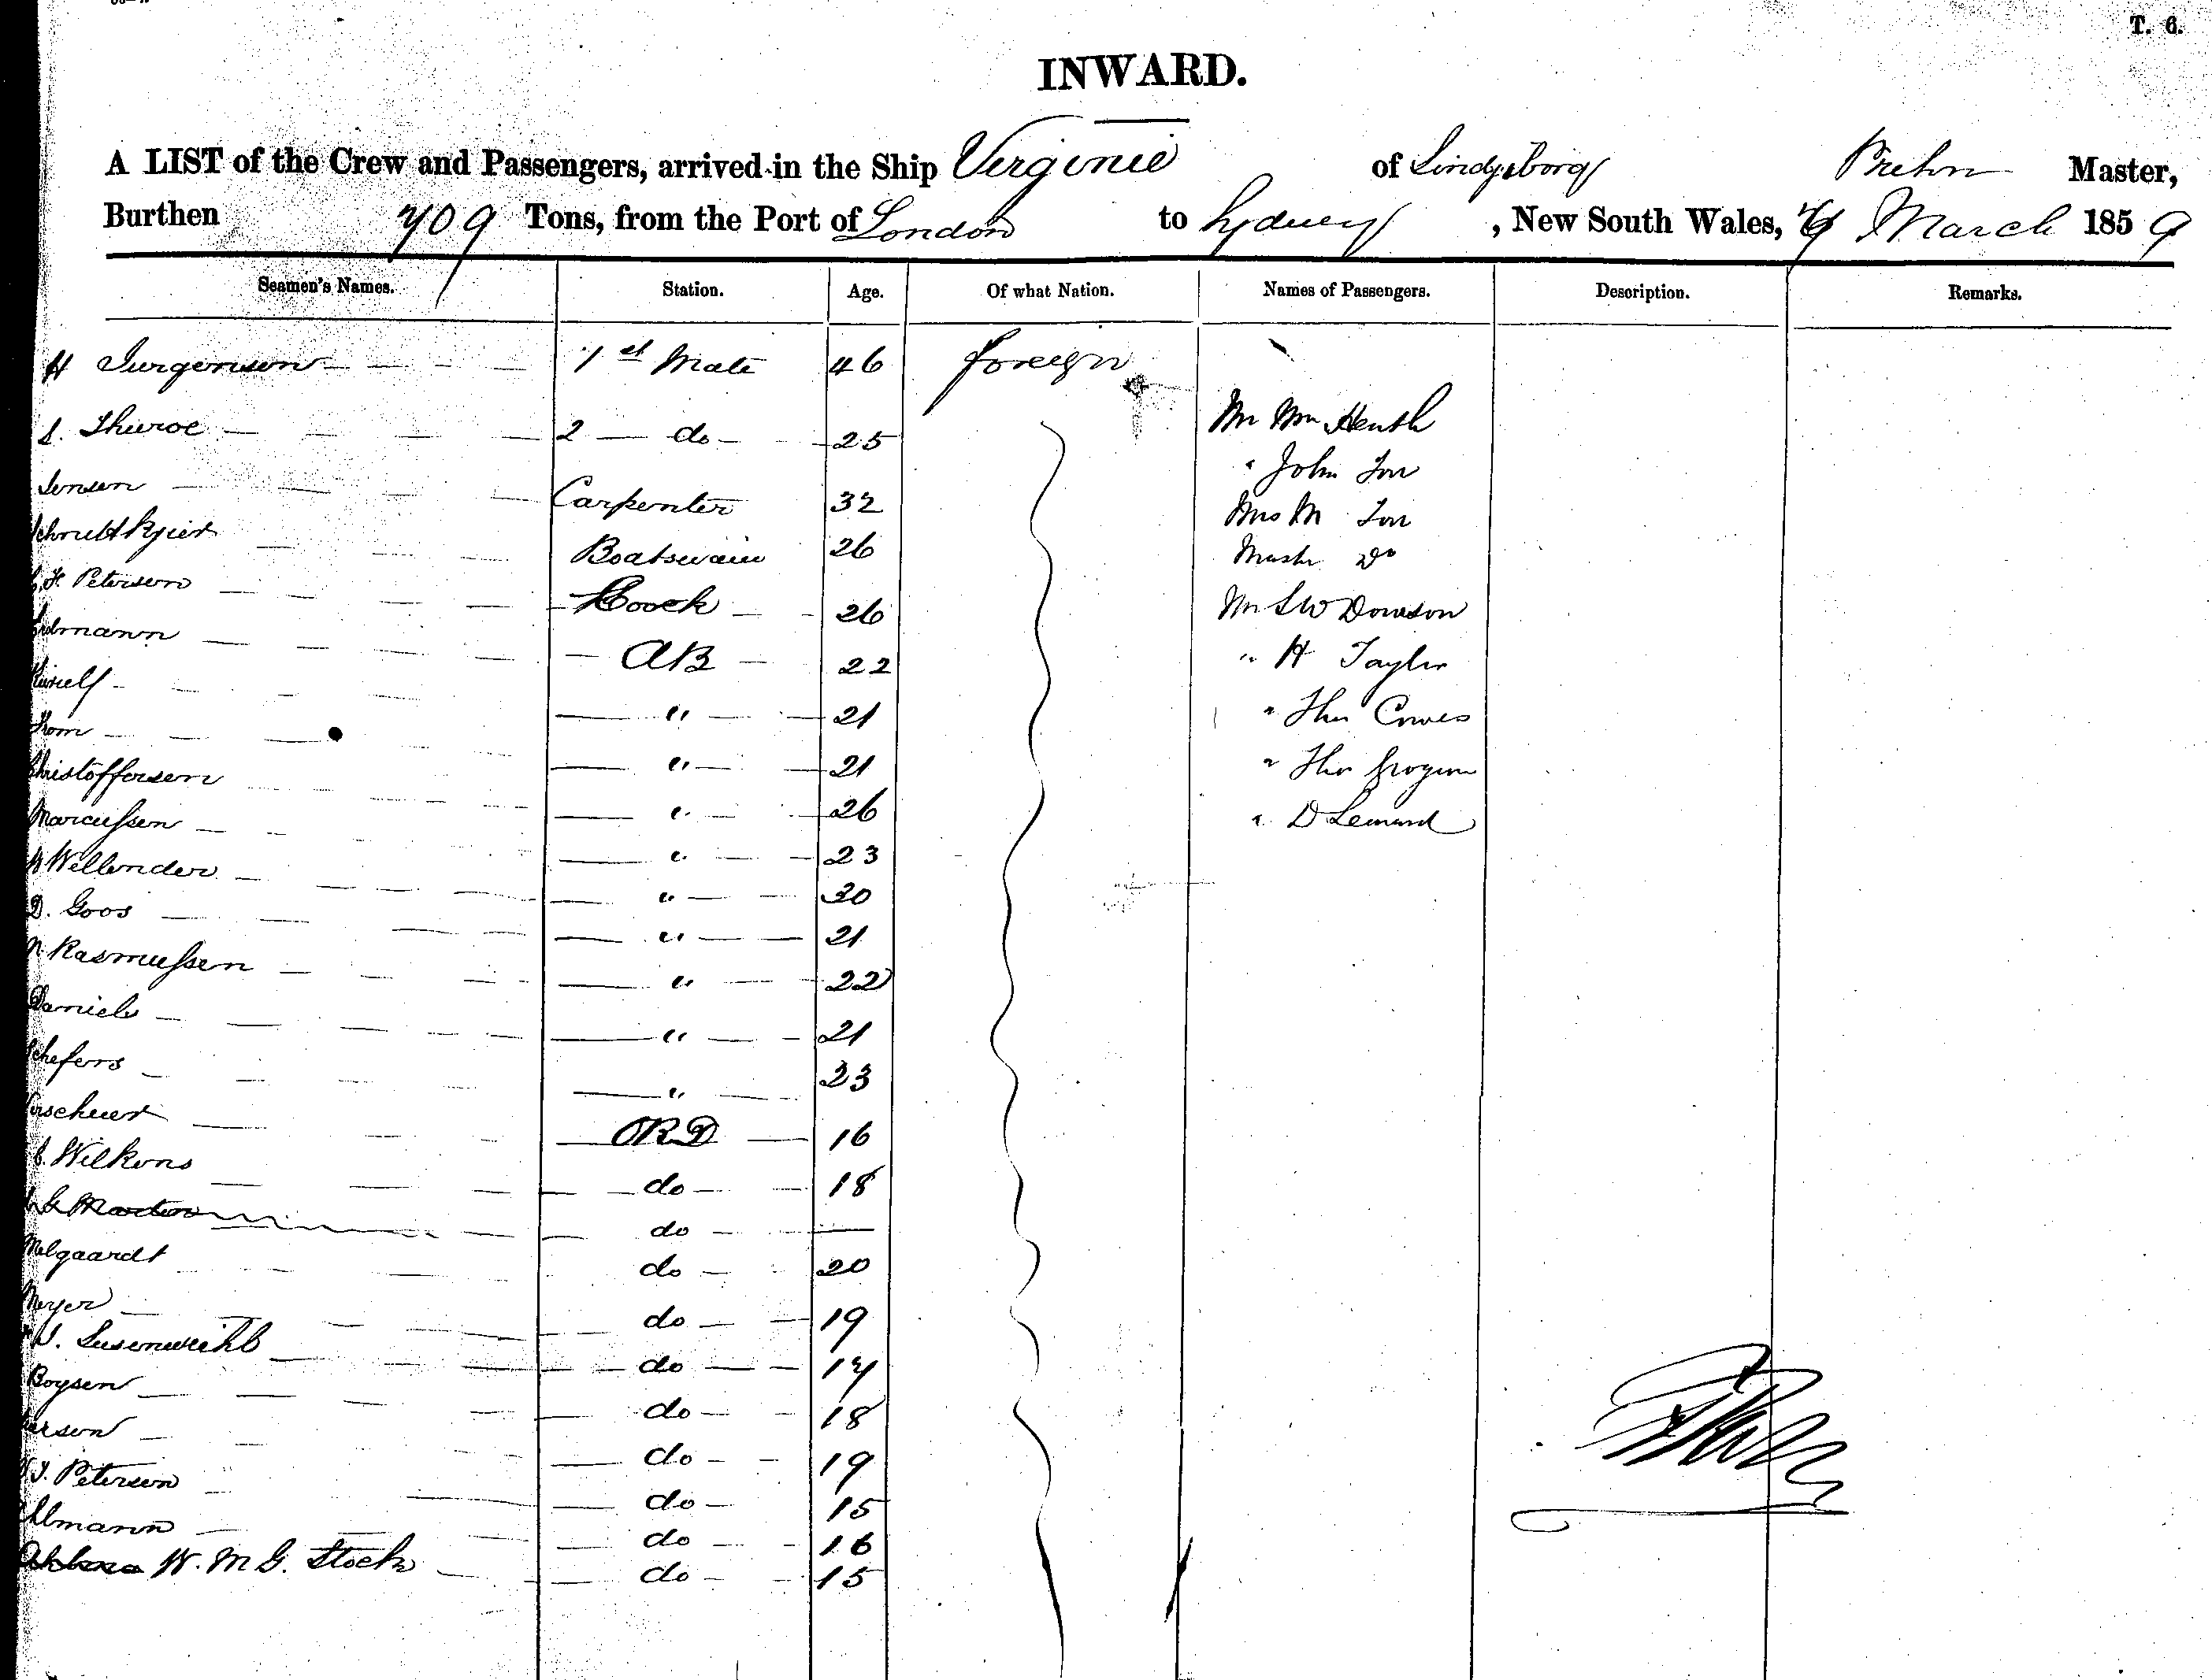 T. 6.
INWARD.
A LIST of the Crew and Passengers, arrived in the Ship Virginie of Lindysborg Prehn Master,
Burthen 709 Tons, from the Port of London to Sydney, New South Wales, March 1859
Seamen's Names. Station. Age. Of what Nation. Names of Passengers. Description. Remarks.
H Jurgensen 1st Mate 46 foreign
S. Thuroe 2 do 25 Mr Wm Heath
Jensen Carpenter 32 " John
Boatswain 26 Mrs M
H. Petersen Coock 26 Mastr Do
AB 22 Mr S W Dowson
" 21 " H Taylor
Thom " 21 " Thos Cowes
Christoffersen " 26 " Thos Grogan
Marcussen " 23 " D Lenard
Wellender " 30
D. Goos " 21
N Rasmussen " 22
Daniels " 21
Schefers " 23
Verscheuer ORD 16
Wilkens do 18
G Marten do —
Melgaardt do 20
Meyer do 19
do 17
Boysen do 18
do 19
J. Petersen do 15
do 16
W. M G. Stock do 15